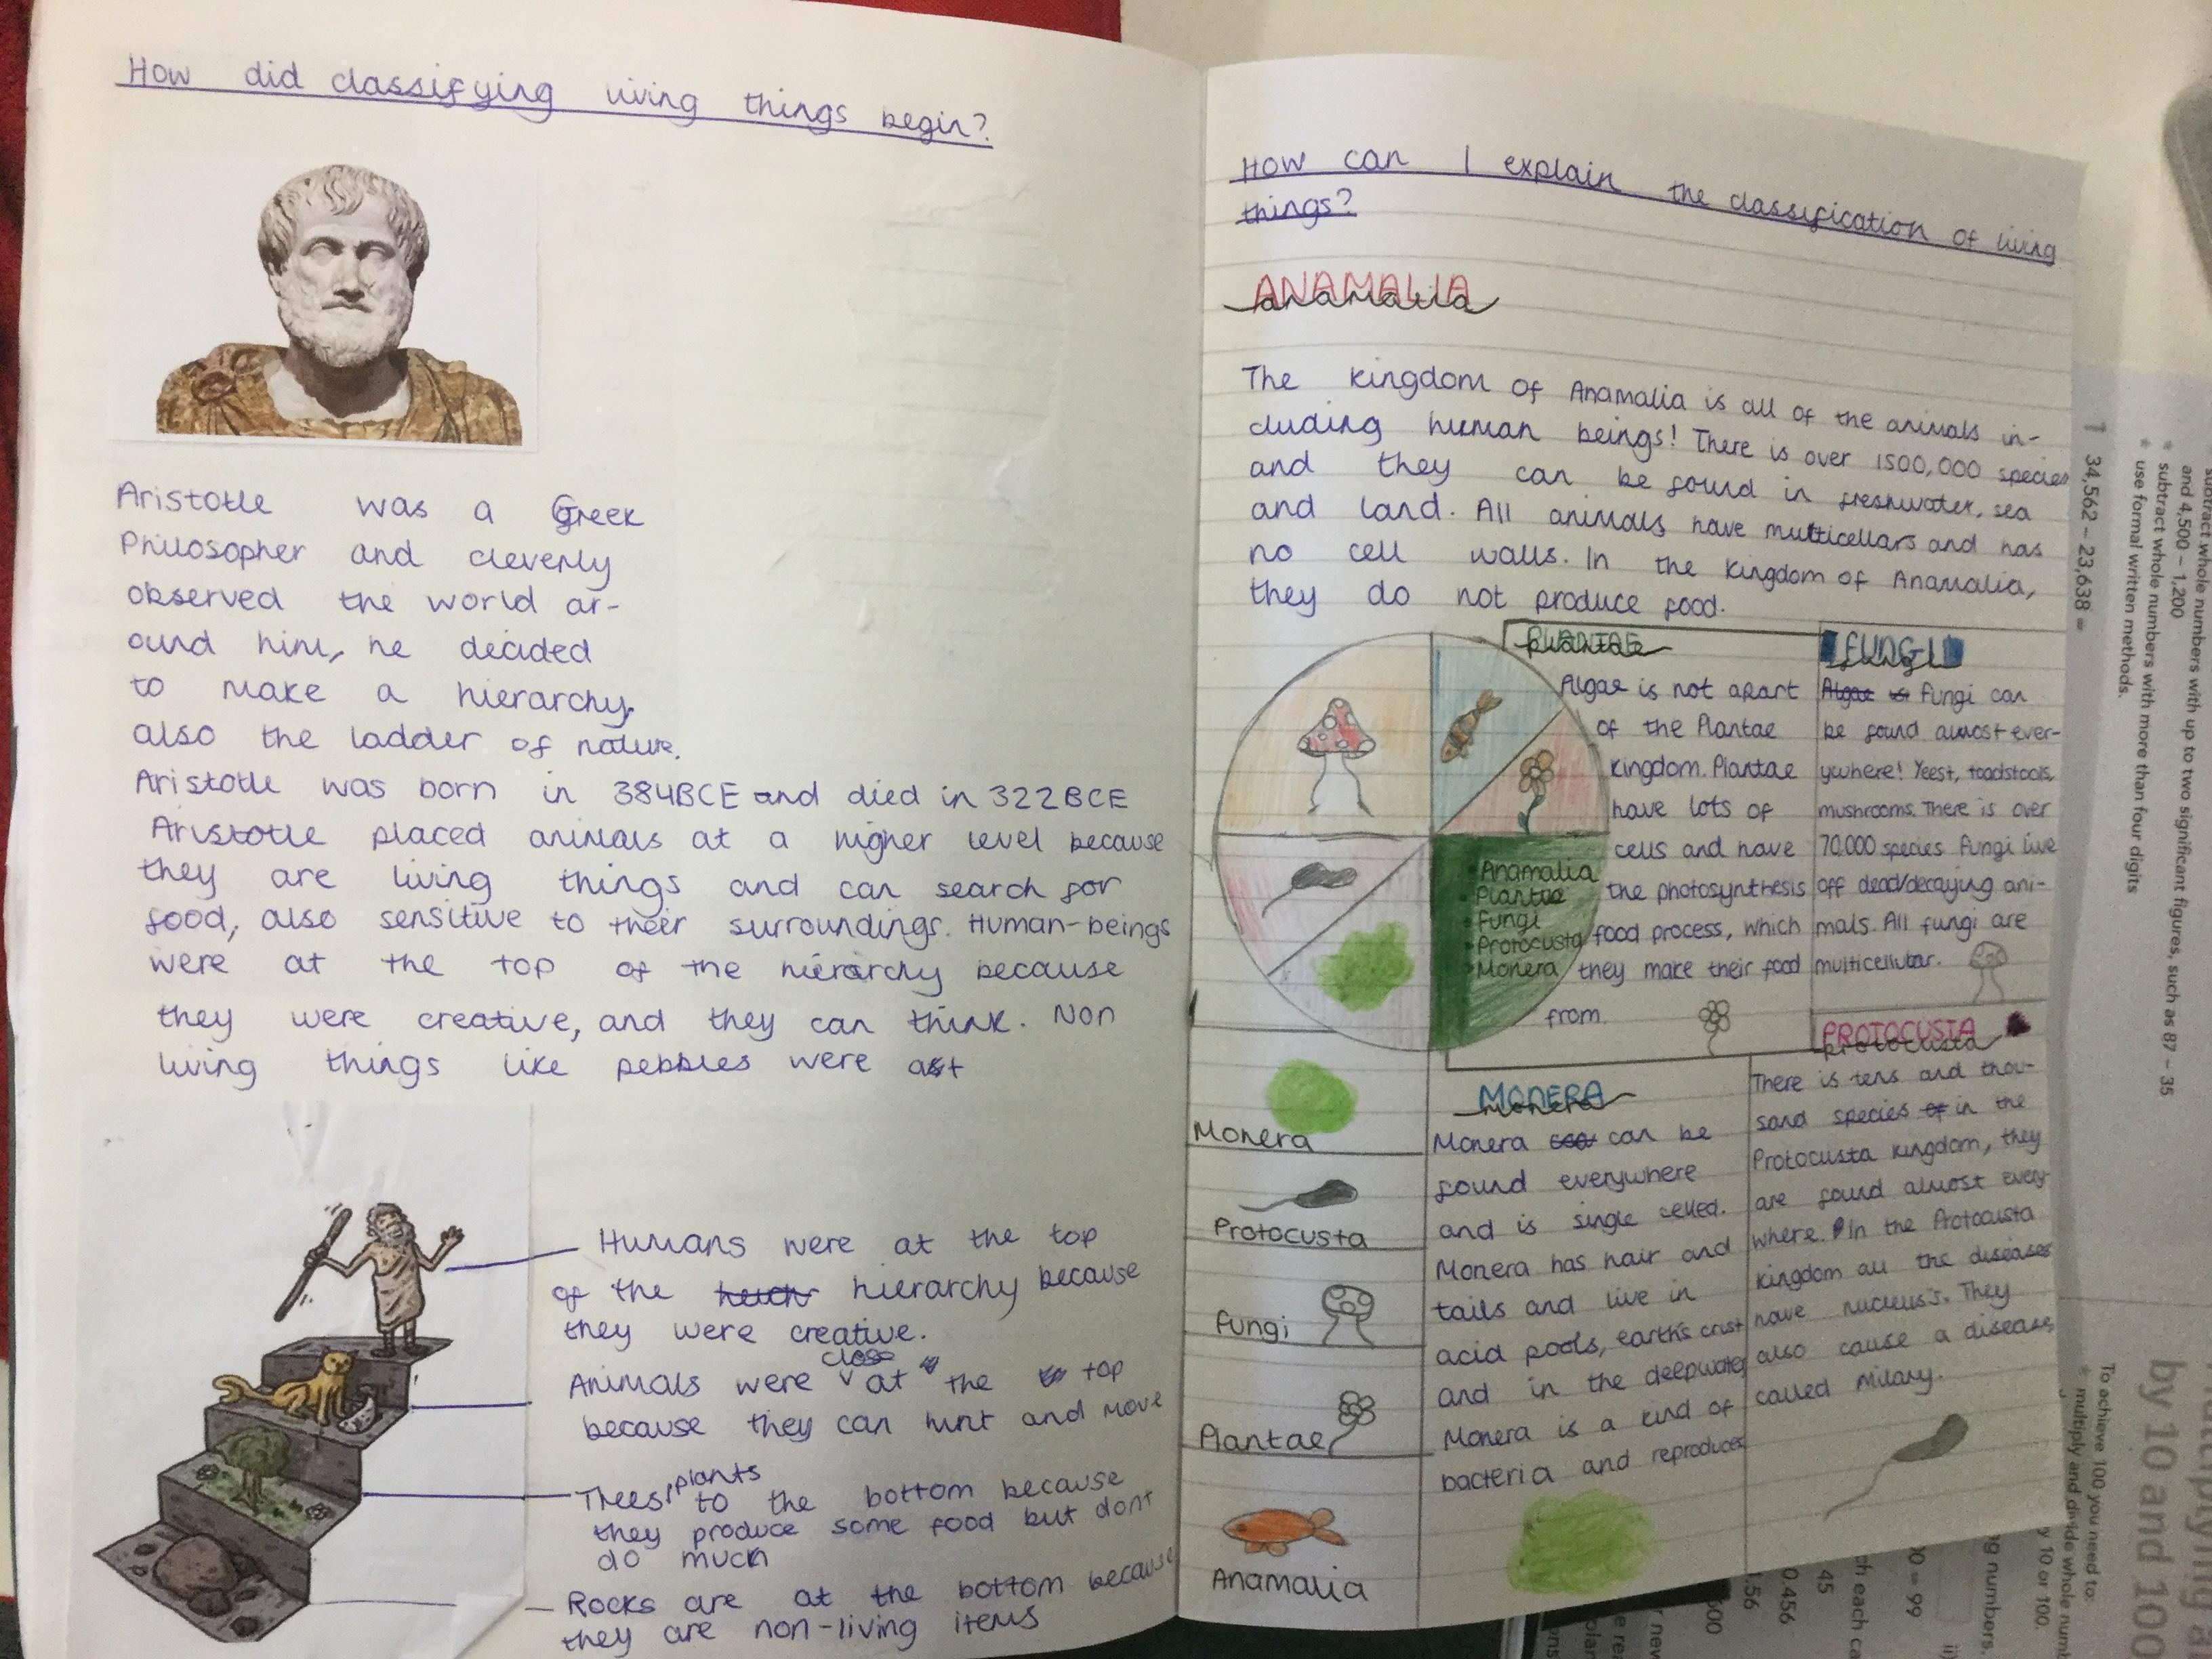 How did classifying living things begin?
Aristotle was a Greek
Philosopher and cleverly
observed the world ar-
ound him, he decided
to make a hierarchy,
also the ladder of nature.
Aristotle was born in 384BCE and died in 322BCE
Aristotle placed animals at a higher level because
they are living things and can search for
food, also sensitive to their surroundings. Human-beings
were at the top of the hierarchy because
they were creative, and they can think. Non
living things like pebbles were
Humans were at the top
of the hierarchy because
they were creative.
Animals were close at the top
because they can hunt and move
Trees, plants to the bottom because
they produce some food but dont
do much
Rocks are at the bottom because
they are non-living items
How can I explain the classification of living
things?
ANAMALIA
anamalia
The kingdom of Anamalia is all of the animals in-
cluding human beings! There is over 1500,000 species
and they can be found in freshwater, sea
and land. All animals have multicellars and has
no cell walls. In the kingdom of Anamalia,
they do not produce food.
• Anamalia
• Plantae
• Fungi
• Protocusta
• Monera
PLANTAE
plantae
Algae is not apart
of the Plantae
kingdom. Plantae
have lots of
cells and have
the photosynthesis
food process, which
they make their food
from
FUNGI
fungi
Algae is Fungi can
be found almost ever-
ywhere! Yeest, toadstools,
mushrooms. There is over
70,000 species Fungi live
off dead/decaying ani-
mals. All fungi are
multicellular.
Monera
Protocusta
Fungi
Plantae
Anamalia
MONERA
monera
Monera can be
found everywhere
and is single celled.
Monera has hair and
tails and live in
acid pools, earth's crust
and in the deepwater
Monera is a kind of
bacteria and reproduces
PROTOCUSTA
protocusta
There is tens and thou-
sand species of in the
Protocusta kingdom, they
are found almost every-
where. In the Protocusta
kingdom all the diseases
have nucleus's. They
also cause a disease
called Milary.
subtract whole numbers with up to two significant figures, such as 87 – 35
and 4,500 – 1,200
* subtract whole numbers with more than four digits
* use formal written methods.
1 34,562 – 23,638 =
by 10 and 100
To achieve 100 you need to:
* multiply and divide whole
by 10 or 100.
ng numbers.
00 = 99
45
0.456
1.56
ch each ca